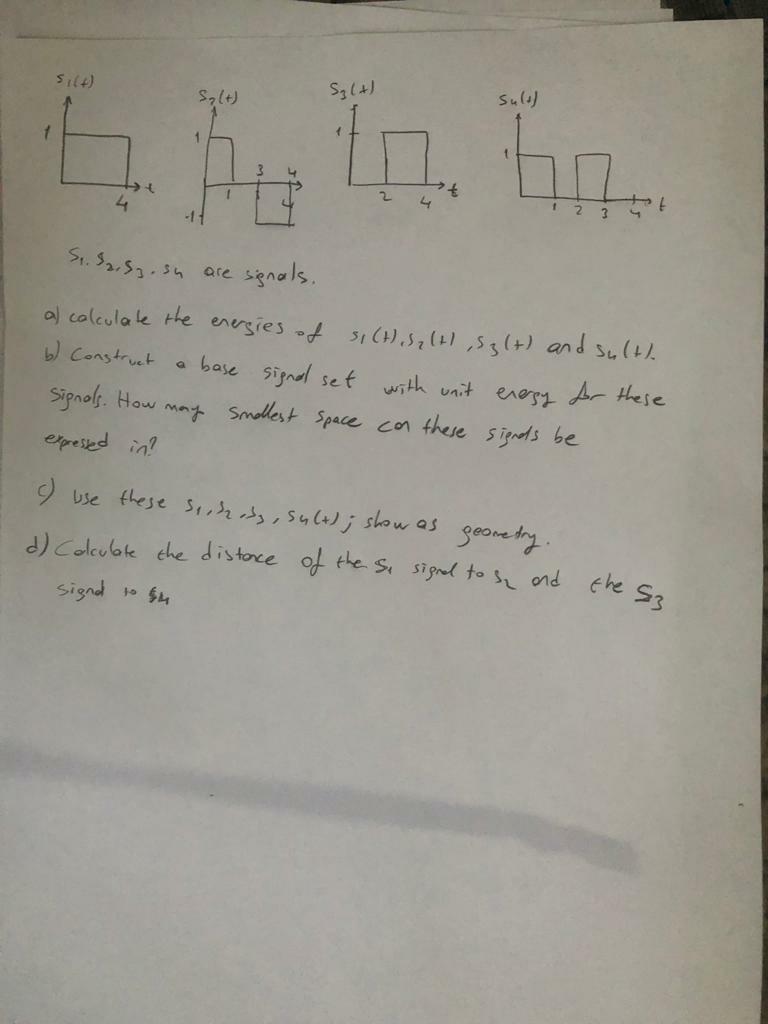 s1(t)
s2(t)
s3(t)
s4(t)
1
4
t
1
-1
1
3
4
1
2
4
t
1
1
2
3
4
t
s1. s2, s3. s4 are signals.
a) calculate the energies of s1(t), s2(t), s3(t) and s4(t).
b) Construct a base signal set with unit energy for these
signals. How may smallest space can these signals be
expressed in?
c) use these s1, s2, s3, s4(t); show as geometry.
d) Calculate the distance of the s1 signal to s2 and the s3
signal to s4